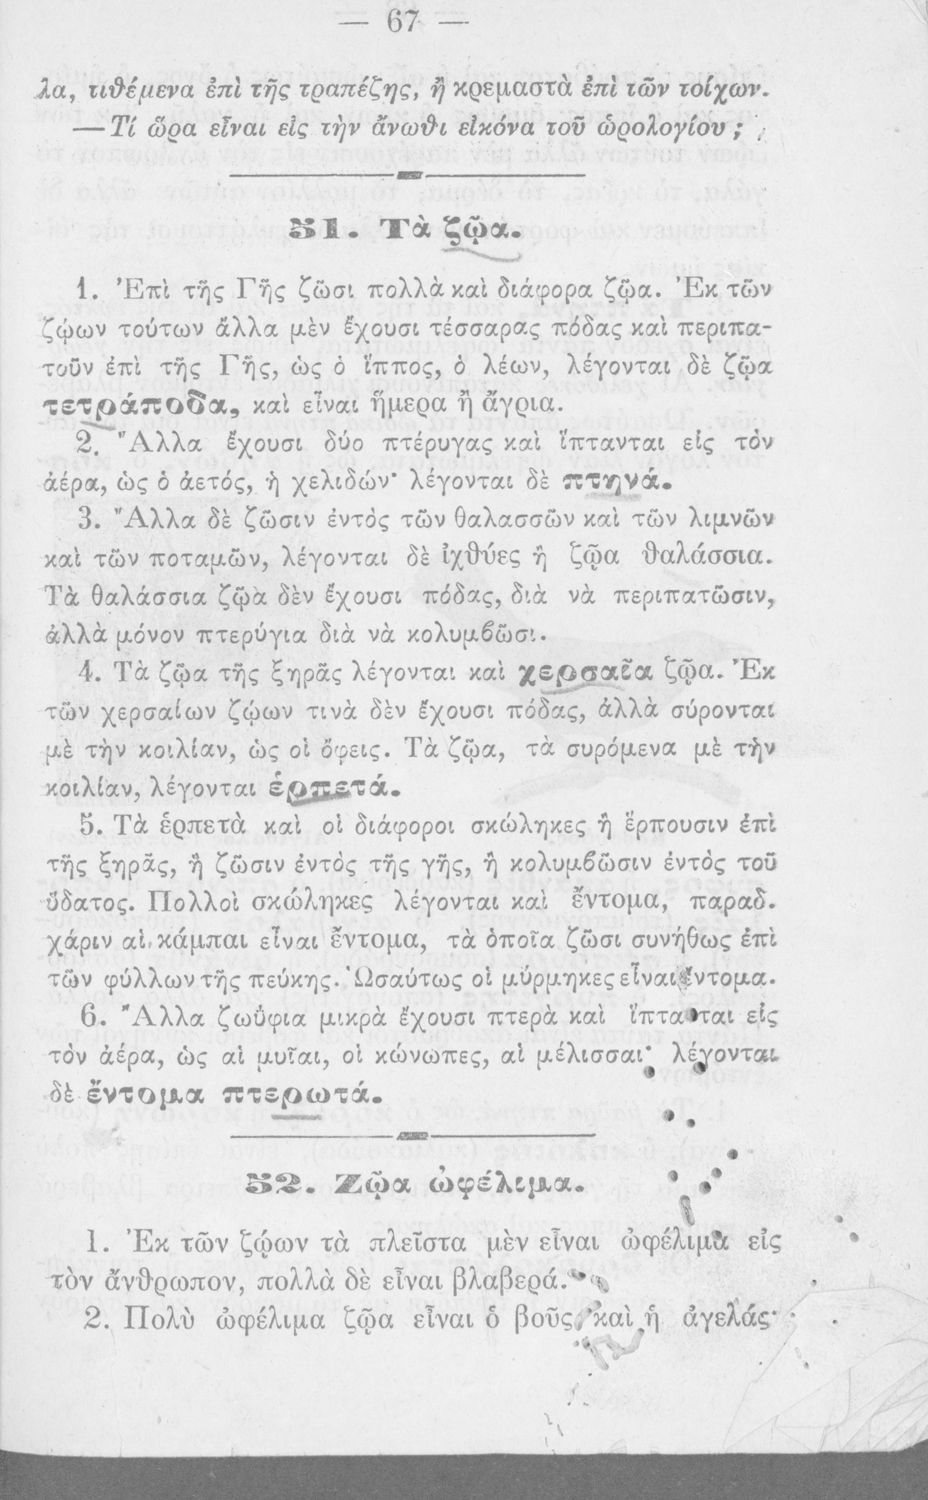 — 67 —
λα, τιθέμενα ἐπὶ τῆς τραπέζης, ἢ κρεμαστὰ ἐπὶ τῶν τοίχων.
— Τί ὥρα εἶναι εἰς τὴν ἄνωθι εἰκόνα τοῦ ὡρολογίου;
51. Τὰ ζῷα.
1. Ἐπὶ τῆς Γῆς ζῶσι πολλὰ καὶ διάφορα ζῷα. Ἐκ τῶν
ζῴων τούτων ἄλλα μὲν ἔχουσι τέσσαρας πόδας καὶ περιπα-
τοῦν ἐπὶ τῆς Γῆς, ὡς ὁ ἵππος, ὁ λέων, λέγονται δὲ ζῷα
τετράποδα, καὶ εἶναι ἥμερα ἢ ἄγρια.
2. Ἄλλα ἔχουσι δύο πτέρυγας καὶ ἵπτανται εἰς τὸν
ἀέρα, ὡς ὁ ἀετός, ἡ χελιδών· λέγονται δὲ πτηνά.
3. Ἄλλα δὲ ζῶσιν ἐντὸς τῶν θαλασσῶν καὶ τῶν λιμνῶν
καὶ τῶν ποταμῶν, λέγονται δὲ ἰχθύες ἢ ζῷα θαλάσσια.
Τὰ θαλάσσια ζῷα δὲν ἔχουσι πόδας, διὰ νὰ περιπατῶσιν,
ἀλλὰ μόνον πτερύγια διὰ νὰ κολυμβῶσι.
4. Τὰ ζῷα τῆς ξηρᾶς λέγονται καὶ χερσαῖα ζῷα. Ἐκ
τῶν χερσαίων ζῴων τινὰ δὲν ἔχουσι πόδας, ἀλλὰ σύρονται
μὲ τὴν κοιλίαν, ὡς οἱ ὄφεις. Τὰ ζῷα, τὰ συρόμενα μὲ τὴν
κοιλίαν, λέγονται ἑρπετά.
5. Τὰ ἑρπετὰ καὶ οἱ διάφοροι σκώληκες ἢ ἕρπουσιν ἐπὶ
τῆς ξηρᾶς, ἢ ζῶσιν ἐντὸς τῆς γῆς, ἢ κολυμβῶσιν ἐντὸς τοῦ
ὕδατος. Πολλοὶ σκώληκες λέγονται καὶ ἔντομα, παραδ.
χάριν αἱ κάμπαι εἶναι ἔντομα, τὰ ὁποῖα ζῶσι συνήθως ἐπὶ
τῶν φύλλων τῆς πεύκης. Ὡσαύτως οἱ μύρμηκες εἶναι ἔντομα.
6. Ἄλλα ζωΰφια μικρὰ ἔχουσι πτερὰ καὶ ἵπτανται εἰς
τὸν ἀέρα, ὡς αἱ μυῖαι, οἱ κώνωπες, αἱ μέλισσαι· λέγονται
δὲ ἔντομα πτερωτά.
52. Ζῷα ὠφέλιμα.
1. Ἐκ τῶν ζῴων τὰ πλεῖστα μὲν εἶναι ὠφέλιμα εἰς
τὸν ἄνθρωπον, πολλὰ δὲ εἶναι βλαβερά.
2. Πολὺ ὠφέλιμα ζῷα εἶναι ὁ βοῦς καὶ ἡ ἀγελάς·